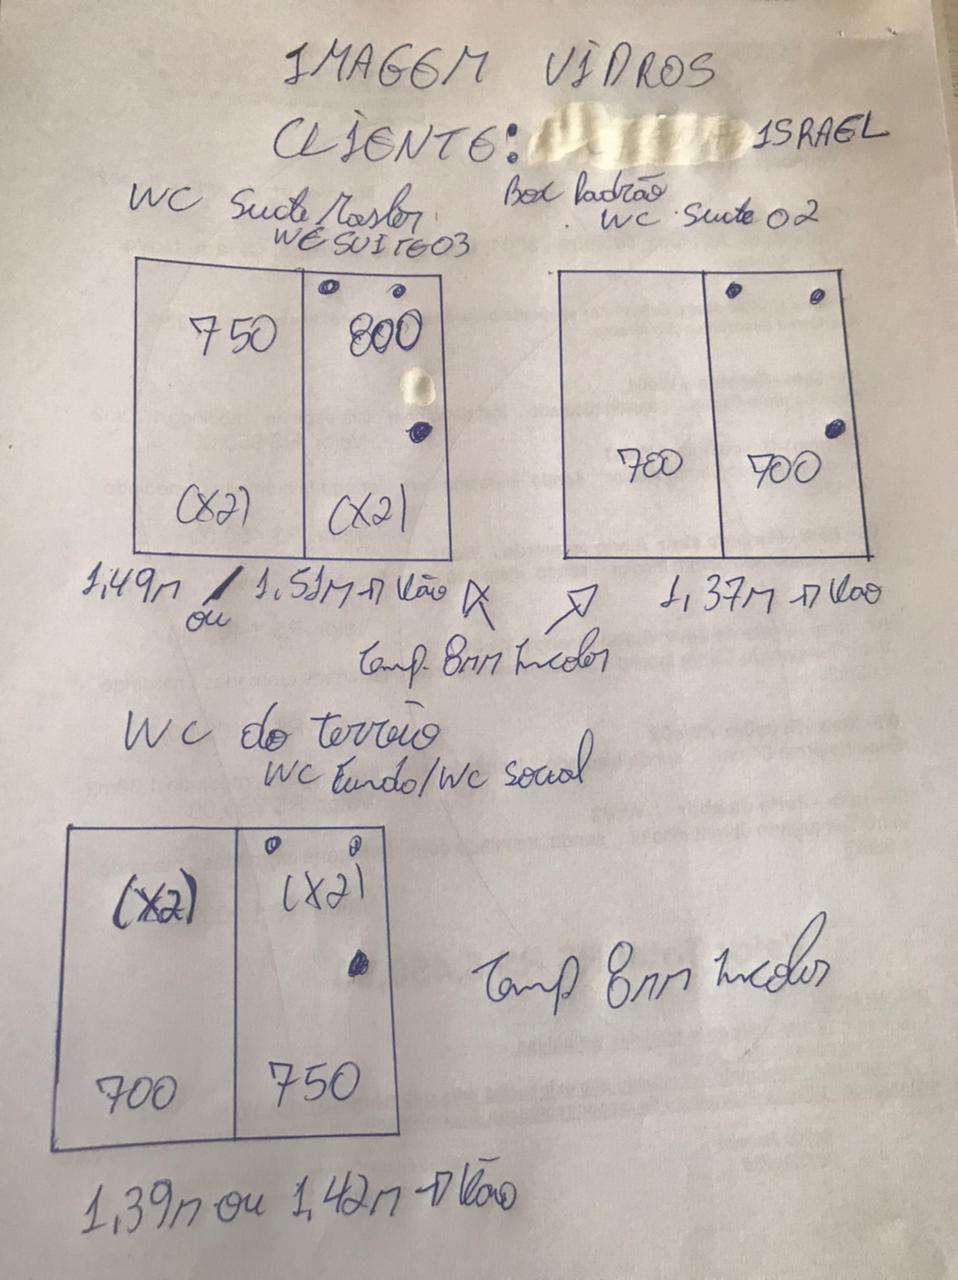 IMAGEM VIDROS
CLIENTE: ISRAEL
Box Padrão
WC Suite Master
WC SUITE 03
WC Suite 02
750
800
(X2)
(X2)
700
700
1,49m / ou 1,51m → Vão
1,37m → Vão
Temp. 8mm Incolor
WC do terrão
WC Fundo/WC Social
(X2)
(X2)
700
750
Temp 8mm Incolor
1,39m ou 1,42m → Vão